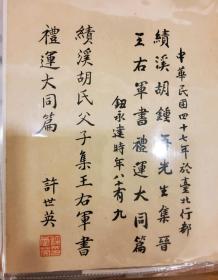 中華民國四十七年於臺北行都
績溪胡鍾吾先生集晉
王右軍書禮運大同篇
鈕永建時年八十有九
績溪胡氏父子集王右軍書
禮運大同篇
許世英